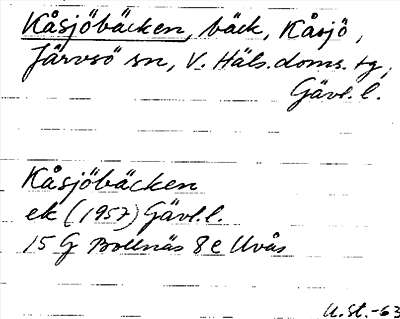 Kåsjöbäcken, bäck, Kåsjö,
Järvsö sn, V. Häls. doms. tg,
Gävl. l.
Kåsjöbäcken
ek (1957) Gävl. l.
15 G Bollnäs 8e Uvås
U.St.-63